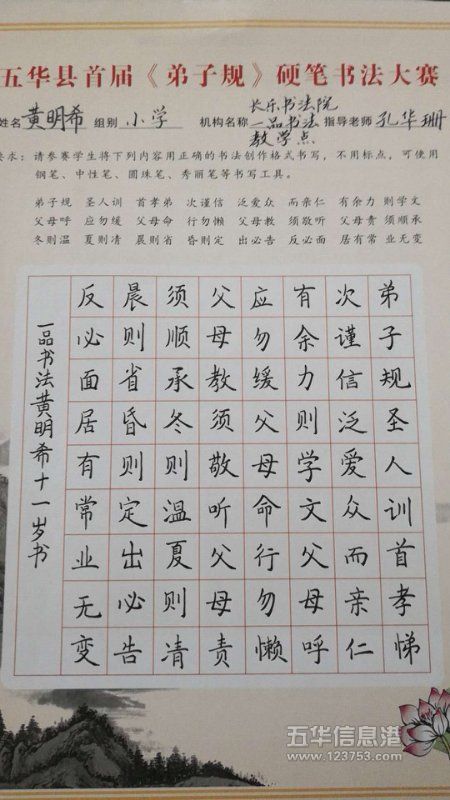 五华县首届《弟子规》硬笔书法大赛
姓名 黄明希 组别 小学 机构名称 长乐书法院 一品书法 教学点 指导老师 孔华珊
要求：请参赛学生将下列内容用正确的书法创作格式书写，不用标点，可使用
钢笔、中性笔、圆珠笔、秀丽笔等书写工具。
弟子规 圣人训 首孝弟 次谨信 泛爱众 而亲仁 有余力 则学文
父母呼 应勿缓 父母命 行勿懒 父母教 须敬听 父母责 须顺承
冬则温 夏则凊 晨则省 昏则定 出必告 反必面 居有常 业无变
弟子规圣人训首孝悌
次谨信泛爱众而亲仁
有余力则学文父母呼
应勿缓父母命行勿懒
父母教须敬听父母责
须顺承冬则温夏则凊
晨则省昏则定出必告
反必面居有常业无变
一品书法黄明希十一岁书
五华信息港
www.123753.com